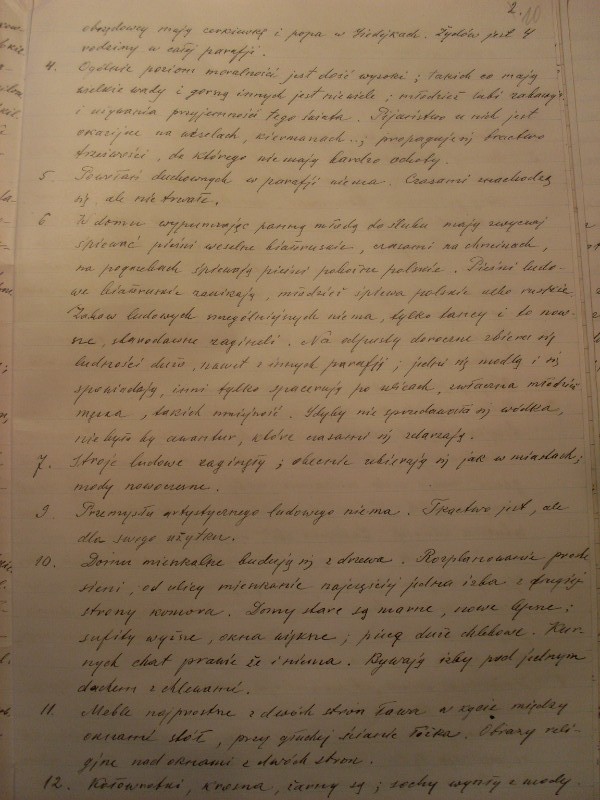 2. 10
obrzędowcy mają cerkiewkę i popa w Hiedejkach. Żydów jest 4
rodziny w całej parafji.
4. Ogólnie poziom moralności jest dość wysoki; takich co mają
wielkie wady i gorszą innych jest niewiele; młodzież lubi zabawy
i używania przyjemności tego świata. Pijaństwo u nich jest
okazyjne na weselach, kiermaszach..; propaguje się bractwo
trzeźwości, do którego nie mają bardzo ochoty.
5. Powołań duchownych w parafji niema. Czasami znachodzą
się ale nie trwałe.
6 Z domu wyprawiając pannę młodą do ślubu mają zwyczaj
śpiewać pieśni weselne białoruskie, czasami na chrzcinach,
na pogrzebach śpiewają pieśni pobożne polskie. Pieśni ludo-
we białoruskie zanikają, młodzież śpiewa polskie albo ruskie.
Zabaw ludowych szczególniejszych niema, tylko tańcy i to now-
sze, starodawne zaginęli. Na odpusty doroczne zbiera się
ludności dużo, nawet z innych parafji; jedni się modlą i się
spowiadają, inni tylko spacerują po ulicach, zwłaszcza młodzież
męska, takich mniejszość. Gdyby nie sprzedawała się wódka,
nie było by awantur, które czasami się zdarzają.
7. Stroje ludowe zaginęły; obecnie ubierają się jak w miastach;
mody nowoczesne.
9. Przemysłu artystycznego ludowego niema. Tkactwo jest, ale
dla swego użytku.
10. Domy mieszkalne budują się z drzewa. Rozplanowanie proste
sieni, od ulicy mieszkanie najczęściej jedna izba z drugiej
strony komora. Domy stare są marne, nowe lepsze;
sufity wyższe, okna większe; piecę duże chlebowe. Kur-
nych chat prawie że i niema. Bywają izby pod jednym
dachem z chlewami.
11. Meble najprostsze z dwóch stron ława w kącie między
oknami stół, przy głuchej ścianie łóżka. Obrazy reli-
gijne nad oknami z dwóch stron.
12. Kołowrotki, krosna, żarny są; sochy wyszły z mody.